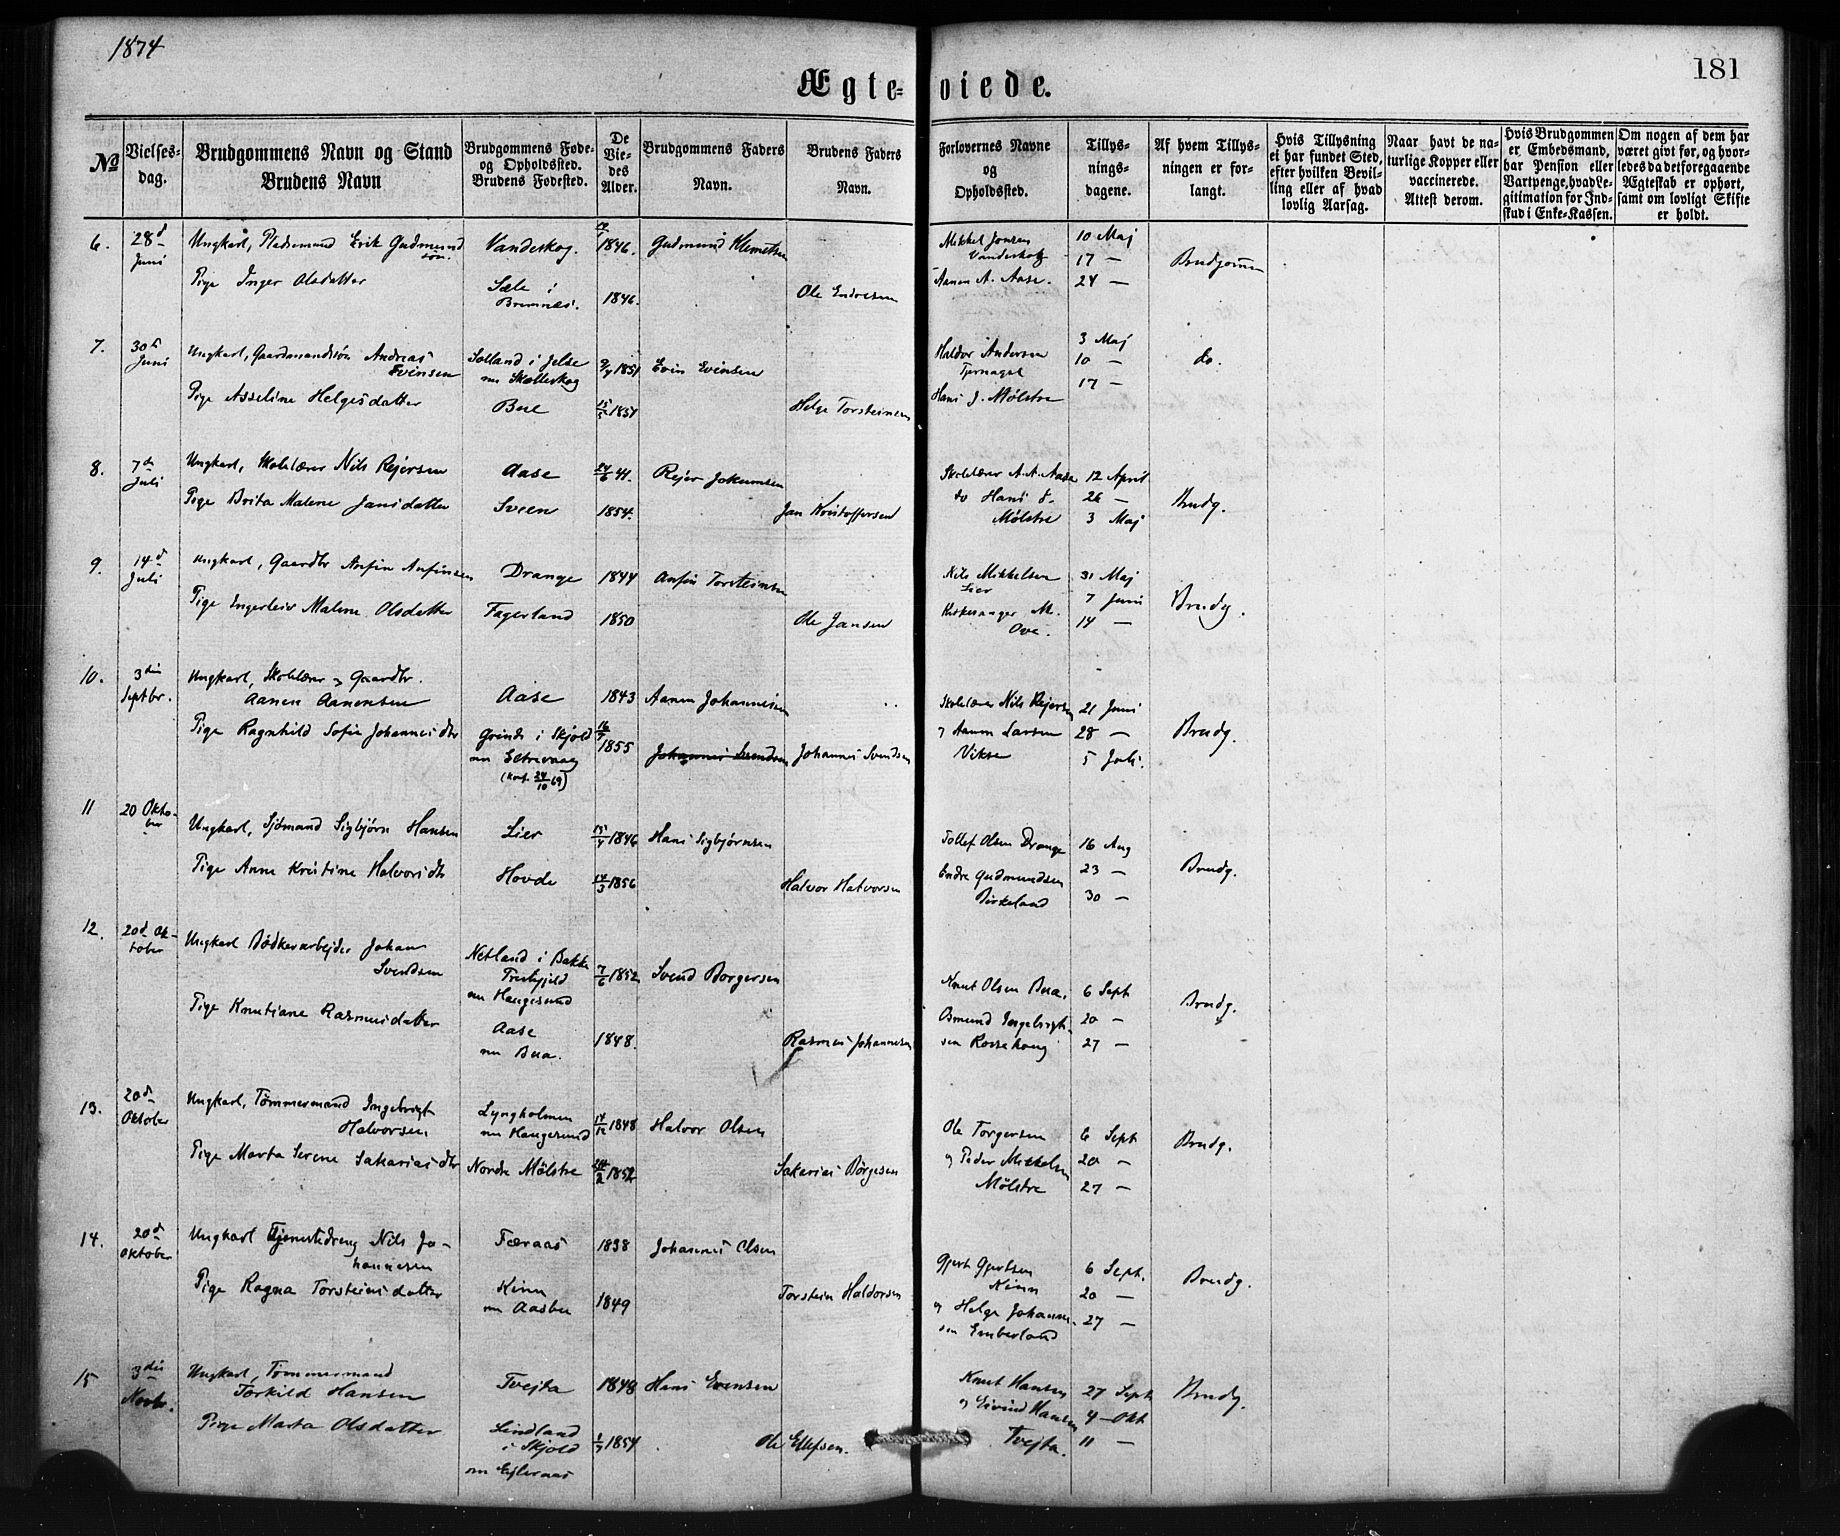 1874
181
Ægte- viede.
No
Vielses-
dag.
Brudgommens Navn og Stand
Brudens Navn
Brudgommens Føde-
og Opholdssted.
Brudens Fødested.
De
Vie-
des
Alder.
Brudgommens Faders
Navn.
Brudens Faders
Navn.
Forlovernes Navne
og
Opholdssted.
Tillys-
nings-
dagene.
Af hvem Tillys-
ningen er for-
langt.
Hvis Tillysning
ei har fundet Sted,
efter hvilken Bevil-
ling eller af hvad
lovlig Aarsag.
Naar havt de na-
turlige Kopper eller
vaccinerede.
Attest derom.
Hvis Brudgommen
er Embedsmand,
har Pension eller
Vartpenge, hvad Le-
gitimation for Ind-
skud i Enke-Kassen.
Om nogen af dem har
været givt før, og hvor-
ledes da det foregaaende
Ægteskab er ophørt,
samt om lovligt Skifte
er holdt.
6. 28d Juni
Ungkarl, Pladsmand Erik Gudmund
søn.
Vandeskog. 1846. Gudmund Klemetsen
Pige Inger Olsdatter
Sæle i
Bremnæs. 1846. Ole Endresen
Mikkel Jonsen 10 Maj
17 — Brudgommen
Aanen A. Aase. 24 —
7. 30d Juni
Ungkarl, Gaardmandssøn Andreas
Evensen
Solland i Jelse
nu Skolleskog 1851 Even Evensen
Pige Asseline Helgesdatter
Bue 1851 Helge Torsteinsen
Haldor Andersen 3 Maj
Tjernagel 10 — do.
17 —
Hans J. Mølstre
8. 7de Juli
Ungkarl, Skolelærer Nils Rejersen
Aase 24/6 41. Rejer Jokumsen
Pige Brita Malene Jansdatter
Sveen 1854. Jan Kristoffersen
Skolelærer A. A. Aase 12 April
do Hans J. 26 — Brudg.
Mølstre 3 Maj
9. 14d Juli
Ungkarl, Gaardbr Anfin Anfinsen
Drange 1844 Anfin Torsteinsen
Pige Engerleiv Malene Olsdatter
Fagerland 1850 Ole Jansen
Nils Mikkelsen 31 Maj
Lier 7 Juni Brudg.
Kirkesanger M. 14 —
Ove.
10. 3die Septbr.
Ungkarl, Skolelærer og Gaardbr.
Aanen Aanensen
Aase 1843 Aanen Johannesen
Pige Ragnhild Sofie Johannesdtr
Grinde i Skjold 16/7 1855
nu Eltrevaag
(Konf. 24/10 69)
Johannes Svendsen Johannes Svendsen
Skolelærer Nils Rejersen 21 Juni
og Aanen Larsen 28 — Brudg.
Vikse 5 Juli.
11 20 Okto-
ber
Ungkarl, Sjømand Sigbjørn Hansen
Lier 15/4 1846 Hans Sigbjørnsen
Pige Anne Kristine Halvorsdtr
Hovde 14/3 1856 Halvor Halvorsen
Tollef Olsen Drange 16 Aug
Endre Gudmundsen 23 — Brudg.
Birkeland 30 —
12. 20d Ok-
tober
Ungkarl Bødkerarbejder Johan
Svendsen
Netland i Bakke
nu Haugesund 7/6 1852 Svend Borgersen
Pige Knutiane Rasmusdatter
Aase
nu Bua. 1848. Rasmus Johannesen
Knut Olsen Bua. 6 Sept
Osmund Ingebrigt- 20 — Brudg.
sen 27 —
13. 20d Oktober
Ungkarl, Tømmermand Ingebrigt
Halvorsen
Lyngholmen
nu Haugesund 17/12 1848 Halvor Olsen
Pige Marta Serene Sakariasdtr
Nordre Mølstre 1852 Sakarias Børgesen
Ole Torgersen 6 Sept
og Peder Mikkelsen 20 — Brudg.
Mølstre 27 —
14. 20d Oktober
Ungkarl Tjenestedreng Nils Jo-
hannesen
Færaas 1838 Johannes Olsen
Pige Ragna Torsteinsdatter
Kinn
nu Aasbu 1849 Torstein Haldorsen
Gjert Gjertsen 6 Sept.
Kinn 20 — Brudg.
og Helge Johanne- 27 —
sen Emberland
15 3die Novbr.
Ungkarl, Tømmermand
Torkild Hansen
Tvejta 1848 Hans Evensen
Pige Marta Olsdatter
Lindland
i Skjold 1/7 1854 Ole Ellefsen.
nu
Knut Hansen 27 Sept
og Eivind Hansen 4 — Okt Brudg.
Tvejta. 11 —